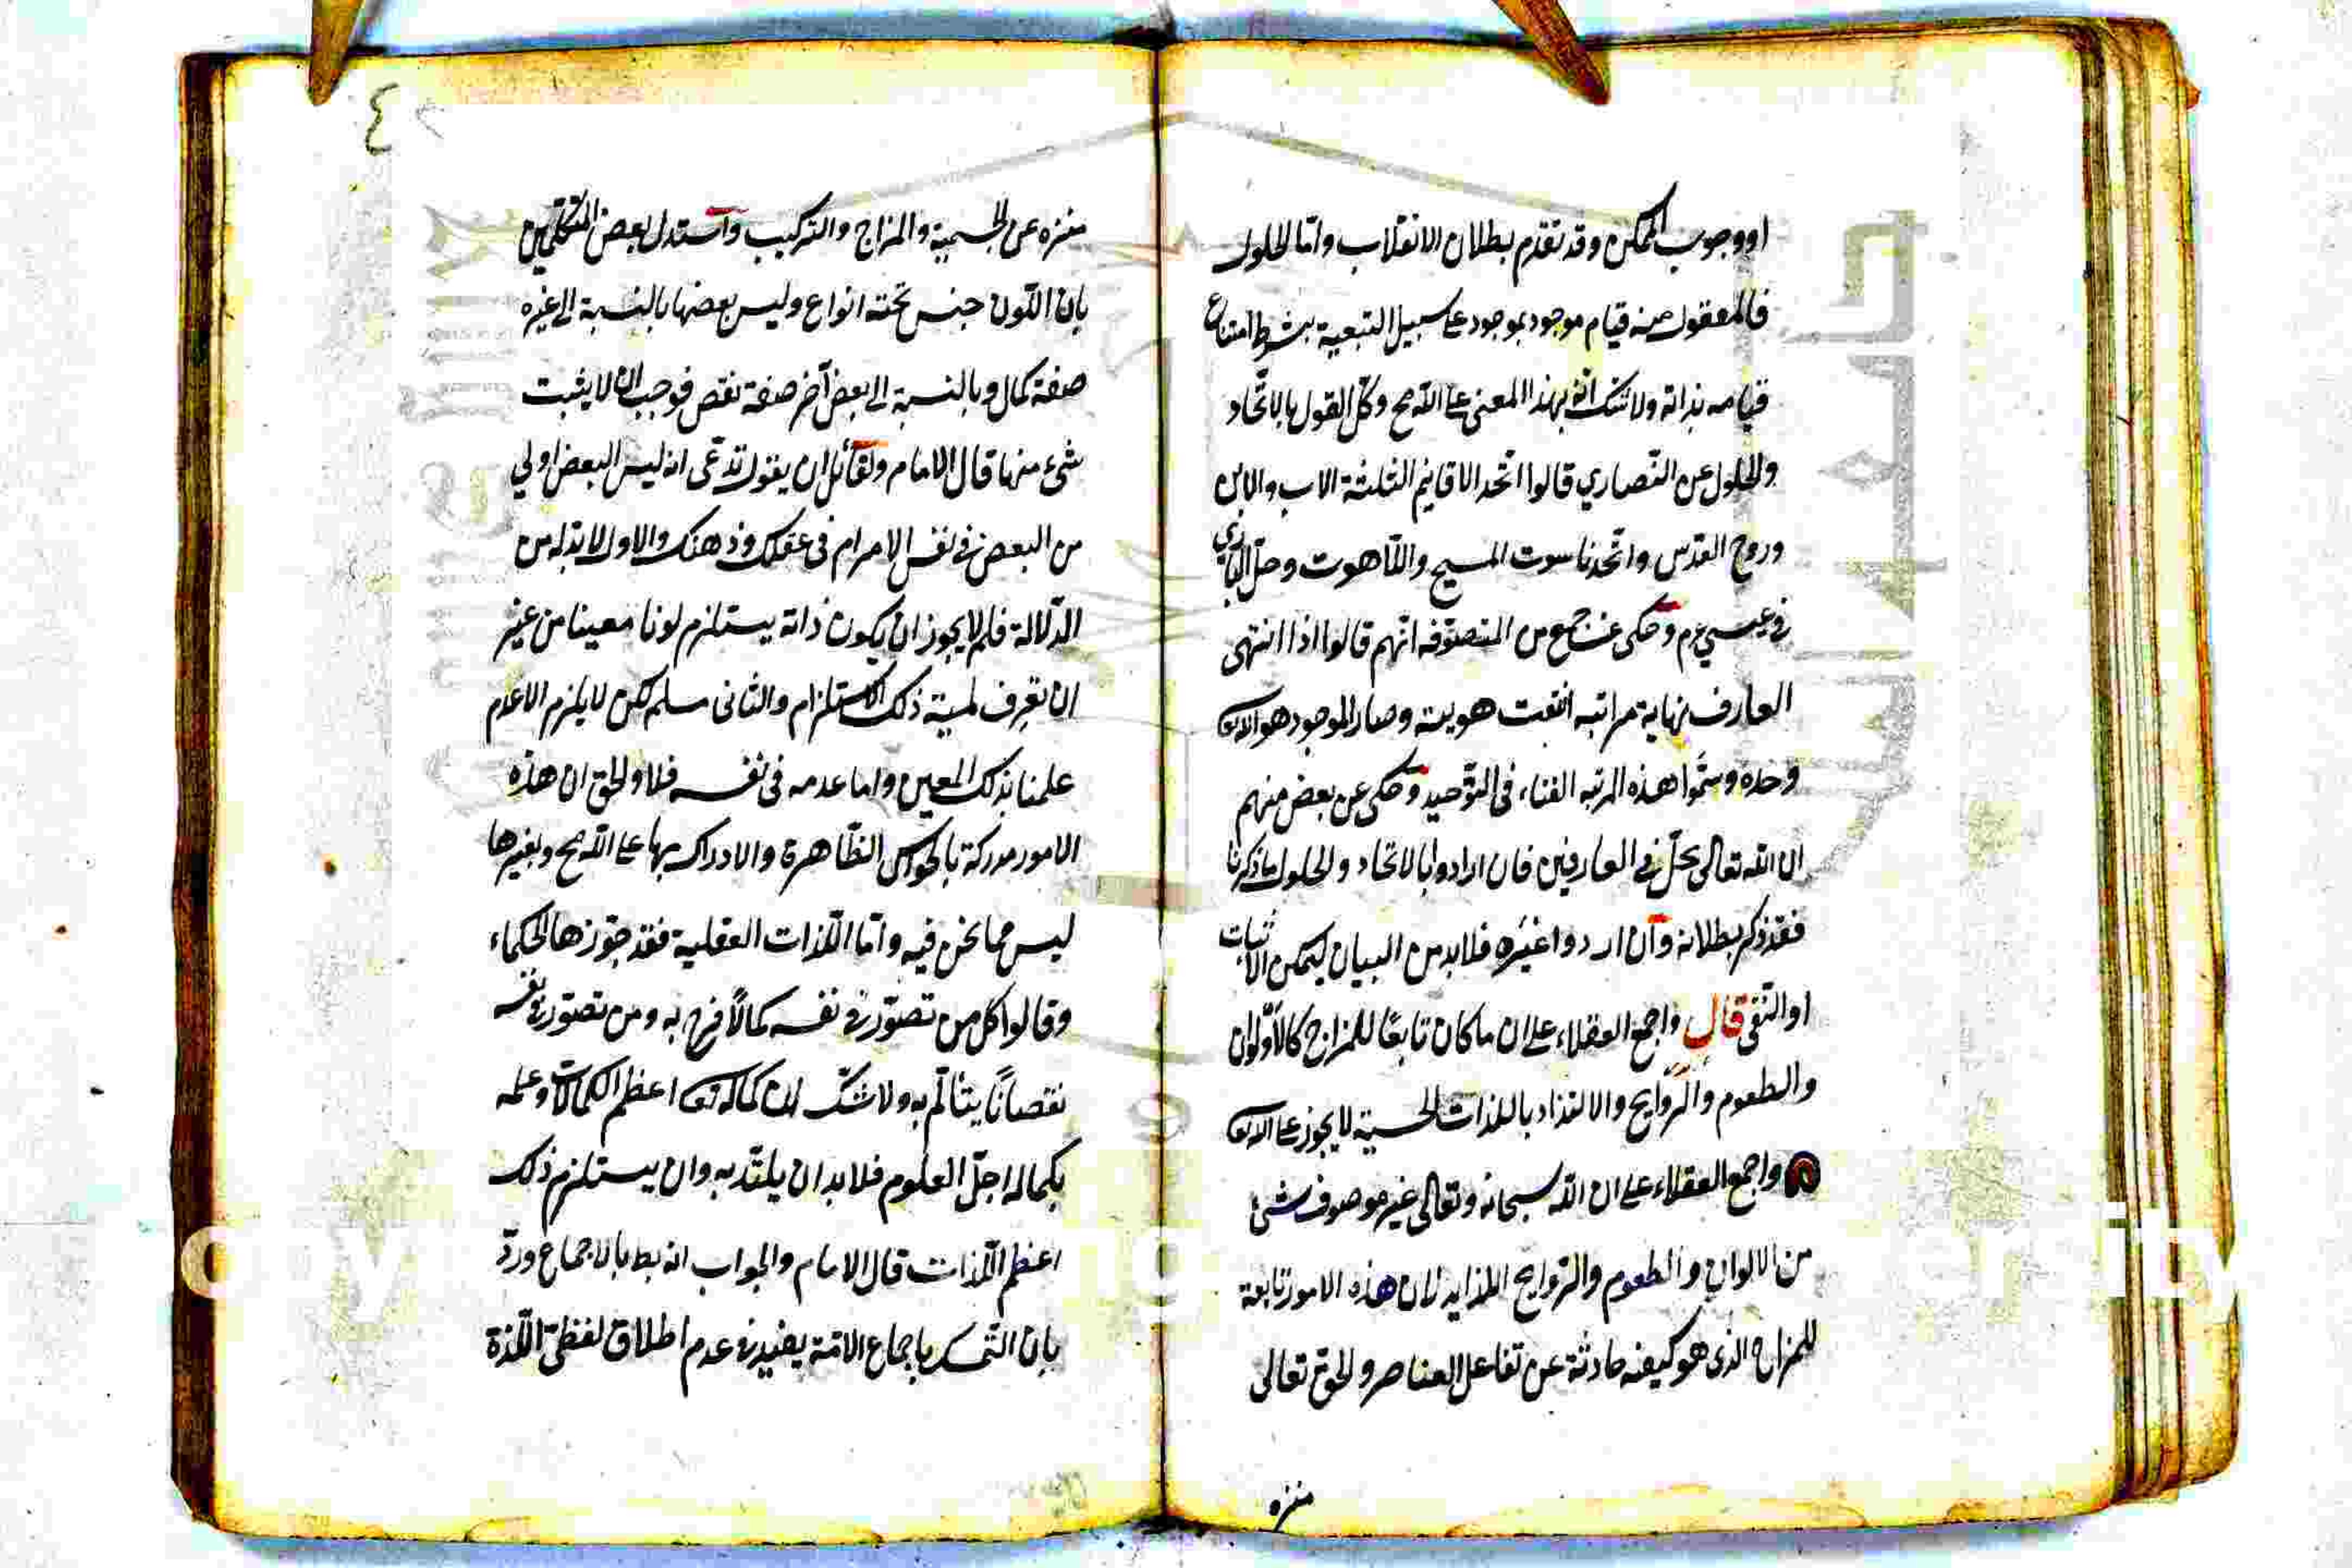 او وجوب الممكن وقد تقدّم بطلان الانقلاب وامّا الحلول
فالمعقول منه قيام موجود بموجود على سبيل التبعية بشرط امتناع
قيامه بذاته ولا شك انّه بهذا المعنى على اللّه مح وحكى القول بالاتّحاد
والحلول عن النّصاري قالوا اتّحد الاقانيم الثلثة الاب والابن
وروح القدس واتّحد ناسوت المسيح واللّاهوت وحلّ الباري
في عيسى ع م وحكى عن جمع من المتصوّفه انّهم قالوا اذا انتهى
العارف نهاية مراتبه انتفت هويته وصار الموجود هو الله تعا
وحده وسمّوا هذه المرتبه الفناء في التوّحيد وحكى عن بعض منهم
ان الله تعالى يحلّ في العارفين فان ارادوا بالاتحاد والحلول ما ذكرنا
فقد ذكر بطلانه وآن ارادوا غيره فلابد من البيان ليمكن الاثبات
او النّفى قال واجمع العقلاء على ان ما كان تابعًا للمزاج كالالوان
والطعوم والرّوايح والالتذاذ باللذات الحسية لا يجوز على الله تعا
واجمع العقلاء على ان اللّه سبحانه وتعالى غير موصوف بشئ
من الالوان والطعوم والرّوايح اللذايه لان هذه الامور تابعة
للمزاج الذى هو كيفيه حادثة عن تفاعل العناصر والحق تعالى
منزه
٤
منزه عن الجسمية والمزاج والتركيب واستدل بعض المتكلّمين
بان اللّون جنس تحته انواع وليس بعضها بالنسبة الى غيره
صفة كمال وبالنسبة الى بعض آخر صفة نقص فوجب ان لا يثبت
شئ منها قال الامام ولقائل ان يقول تدّعى انه ليس البعض اولي
من البعض في نفس الامر ام في عقلك وذهنك والاول لا بد له من
الدّلالة فلم لا يجوز ان يكون ذاته يستلزم لونا معينا من غير
ان تعرف لمية ذلك الاستلزام والثانى مسلم لكن لا يلزم الا عدم
علمنا بذلك المعين واما عدمه فى نفسه فلا والحق ان هذه
الامور مدركة بالحواس الظّاهرة والادراك بها على اللّه مح وبغيرها
ليس مما نحن فيه وامّا اللّذات العقلية فقد جوّزها الحكماء
وقالوا كل من تصوّر في نفسه كمالًا فرح به ومن تصوّر في نفسه
نقصانًا يتألّم به ولا شكّ ان كماله تعا اعظم الكمالات وعلمه
بكماله اجلّ العلوم فلا بد ان يلتذّ به وان يستلزم ذلك
اعظم اللّذات قال الامام والجواب انه بط بالاجماع وردّ
بان التّمسك باجماع الامّة يفيد في عدم اطلاق لفظى اللّذة